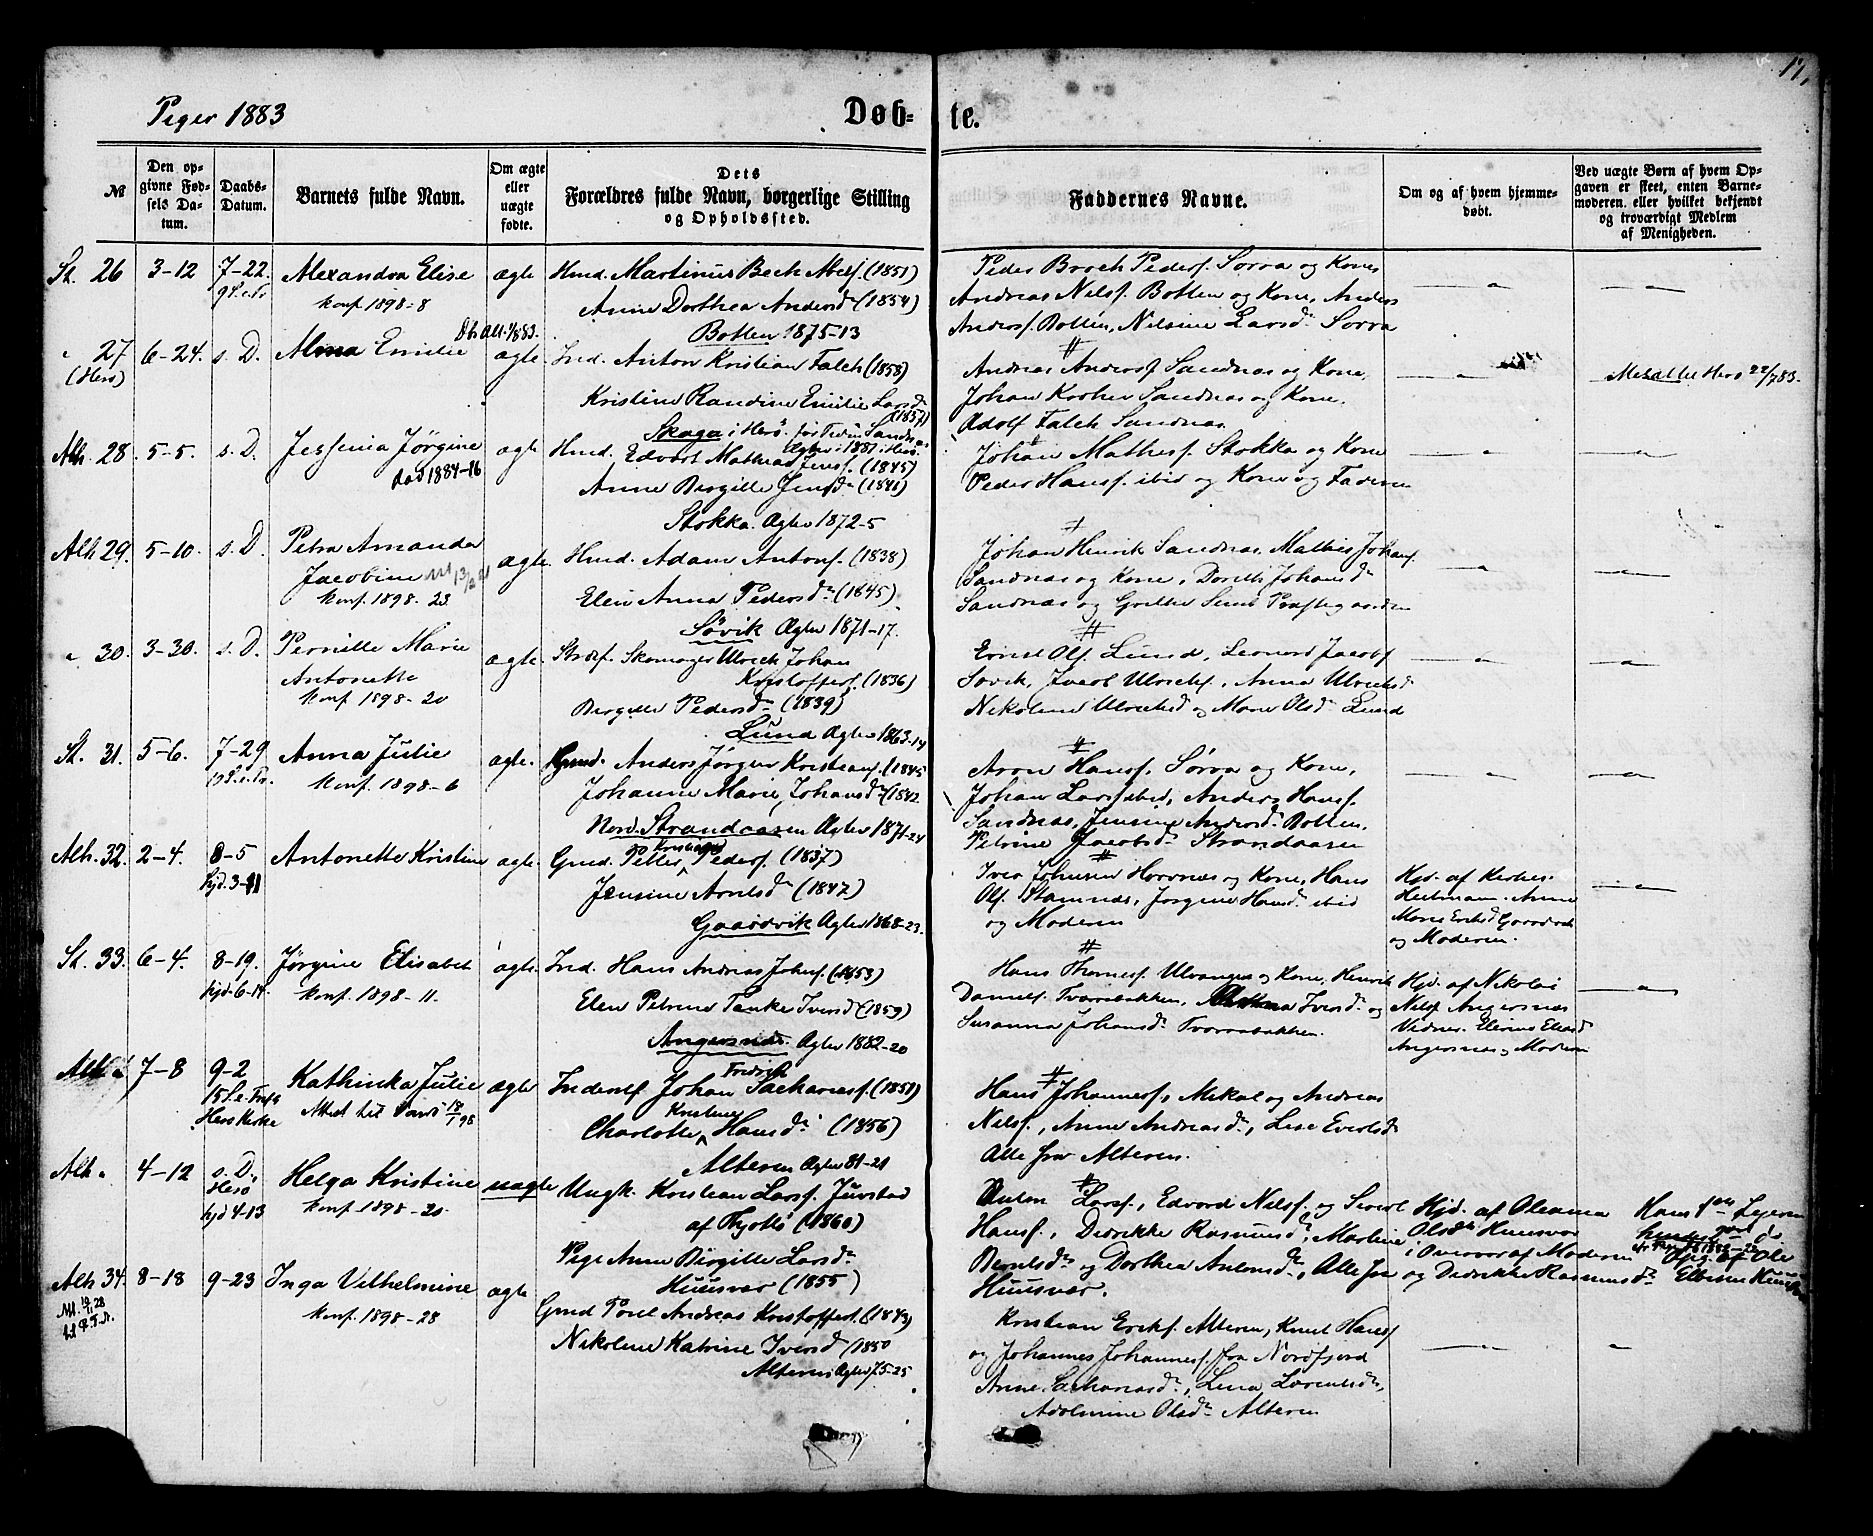 17.
Piger 1883
Døb-
te.
№
Den op-
givne Fød-
sels Da-
tum.
Daabs-
Datum.
Barnets fulde Navn.
Om ægte
eller
uægte
fødte.
Dets
Forældres fulde Navn, borgerlige Stilling
og Opholdssted.
Faddernes Navne.
Om og af hvem hjemme-
døbt.
Ved uægte Børn af hvem Op-
gaven er skeet, enten Barne-
moderen eller hvilket bekjendt
og troværdigt Medlem
af Menigheden.
St. 26 3-12 7-22. Alexandra Elise ægte
konf. 1898-8
Hmd. Martinus Bech (1851)
Anne Dorthea Andersdr (1854)
Botten 1875-13
Peder Broch Peders. Sørra og Kone
Andreas Nilsf. Botten og Kone, Anders
Andersf. Botten, Nilsine Larsdr Sørra
27 6-24. s. D. Alma Emilie ægte
(Herø)
Ind. Anton Kristian Falch (1858)
Kristine Randine Emilie Larsdr
(1857)
Skaga i Herø.
Andreas Andersf Sandnæs og Kone,
Johan Sandnæs og Kone,
Adolf Falch Sandnæs.
Meldt til Herø 22/7 83.
Alh. 28 5-5. s. D. Jessenia Jørgine ægte
død 1884-16
Hmd. Edvart Mathias Jensf. (1845)
Anne Birgitte Jensdr (1841)
Stokka. Ægtev 1872-5
Johan Mathisf. Stokka og Kone
Peder Hansf. ibid og Kone og Faderen
Alh. 29. 5-10. s. D. Petra Amanda ægte.
Jacobine
konf. 1898-23.
Hmd. Adam Antonf. (1838)
Elen Anna Pedersdr (1845)
Søvik Ægtev 1871-17.
Johan Henrik Sandnæs, Mathis Johansf.
Sandnæs og Kone, Dorette Johansdr
Sandnæs og Præstegaarden
30. 3-30. s. D. Pernille Marie ægte.
Antonette
konf. 1898-20
Skomager Ulrich Johan
Kristoffersf. (1836)
Birgitte Pedersdr (1839)
Lund Ægtev 1863-14
Ernst Olsf. Lund, Leonard Jacobsf
Søvik, Jacob Ulriksf., Anna Ulriksdr
Nikoline Ulriksdr og Marie Olsdr Lund
St. 31. 5-6. 7-29 Anna Julie ægte.
konf. 1898-6
Gmd. Anders Jørgen Kristiansf. (1845
Johanne Marie Johansdr (1842
Nord. Strandaasen Ægtev 1871-24
Aron Hansf. Sørra og Kone,
Johan Larsf ibid, Anders Hansf.
Sandnæs, Jensine Andersdr Botten,
Petrine Jacobsdr Strandaasen
Alh. 32. 2-4. 8-5 Antonette Kristine ægte.
hjd. 3-11
Gmd. Petter Kristian Pedersf. (1837)
Jensine Arntsdr (1847)
Gaasvik Ægtev 1868-23.
Iver Johnsen Hornæs og Kone, Hans
Olsf. Stamnæs, Jørgine Hansdr ibid
og Moderen
Hjd. af Kirkes.
Heitmann. Anne
Marie
og Moderen.
St. 33. 6-4. 8-19. Jørgine Elisabet ægte.
hjd. 6-14. konf. 1898-11.
Ind. Hans Andreas Johnsf. (1853)
Elen Petrine Tenke Iversdr (1859)
Angersnæs. Ægtev 1882-20
Hans Thomesf. Ulvangen og Kone, Henrik
Danielsf. Tverrabakken, Iversdr og
Susanna Johansdr Tverrabakken.
Hjd. af Nikolai
Nilsf Angersnæs
Vidner. Eliasdr
Angersnæs, Moderen
Alh 7-8 9-2 Kathinka Julie ægte
Herø Kirke
Attest til 18/1 98
Inderstf. Johan Fredrik Sachariasf. (1851)
Charlotte Kristine Hansdr (1856)
Alteren Ægtev 81-21
Hans Johannesf., Mikal og Andreas
Nilsf., Anne Andreasdr, Lise Evertsdr
Alle fra Alteren.
Alh. 4-12 s. D. Helga Kristine uægte
Herø
hjd 4-13 konf. 1898-20.
Ungk. Kristian Larsf. Juvstad
af Tjøttø (1860)
Pige Anne Birgitte Larsdr
Huusvær (1855)
Larsf., Edvard Nilsf. og Sivert
Hansf., Didrikke Rasmusdr, Martine
Berntsdr og Dorthea Antonsdr, Alle fra
Huusvær.
Hjd. af Oleanna
Olsdr Huusvær
i Overvær af Moderen
og Didrikke Rasmusdr
Hans 1ste Leierm.
hendes 2det do.
Opg. af Ole
Alh 34. 8-18 9-23 Inga Vilhelmine ægte
konf. 1898-28
Gmd Povel Andreas Kristoffersf. (1843)
Nikoline Katrine Iversdr (1850
Alteren Ægtev 75-25
Kristian Eriksf. Alteren, Knut Hansf
og Johannes Johannesf. fra Nordfjord
Anne Sachariasdr, Lina Lorentsdr,
Adolmine Olsdr Alteren